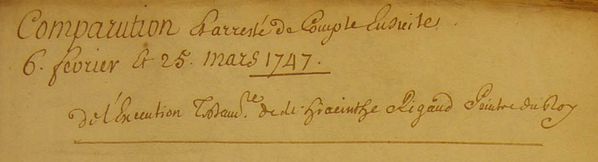 Comparution Et arresté de Compte Ensuite
6. fevrier Et 25. mars 1747.
de l'Execution Testam.re de de hiacinthe Rigaud Peintre du Roy